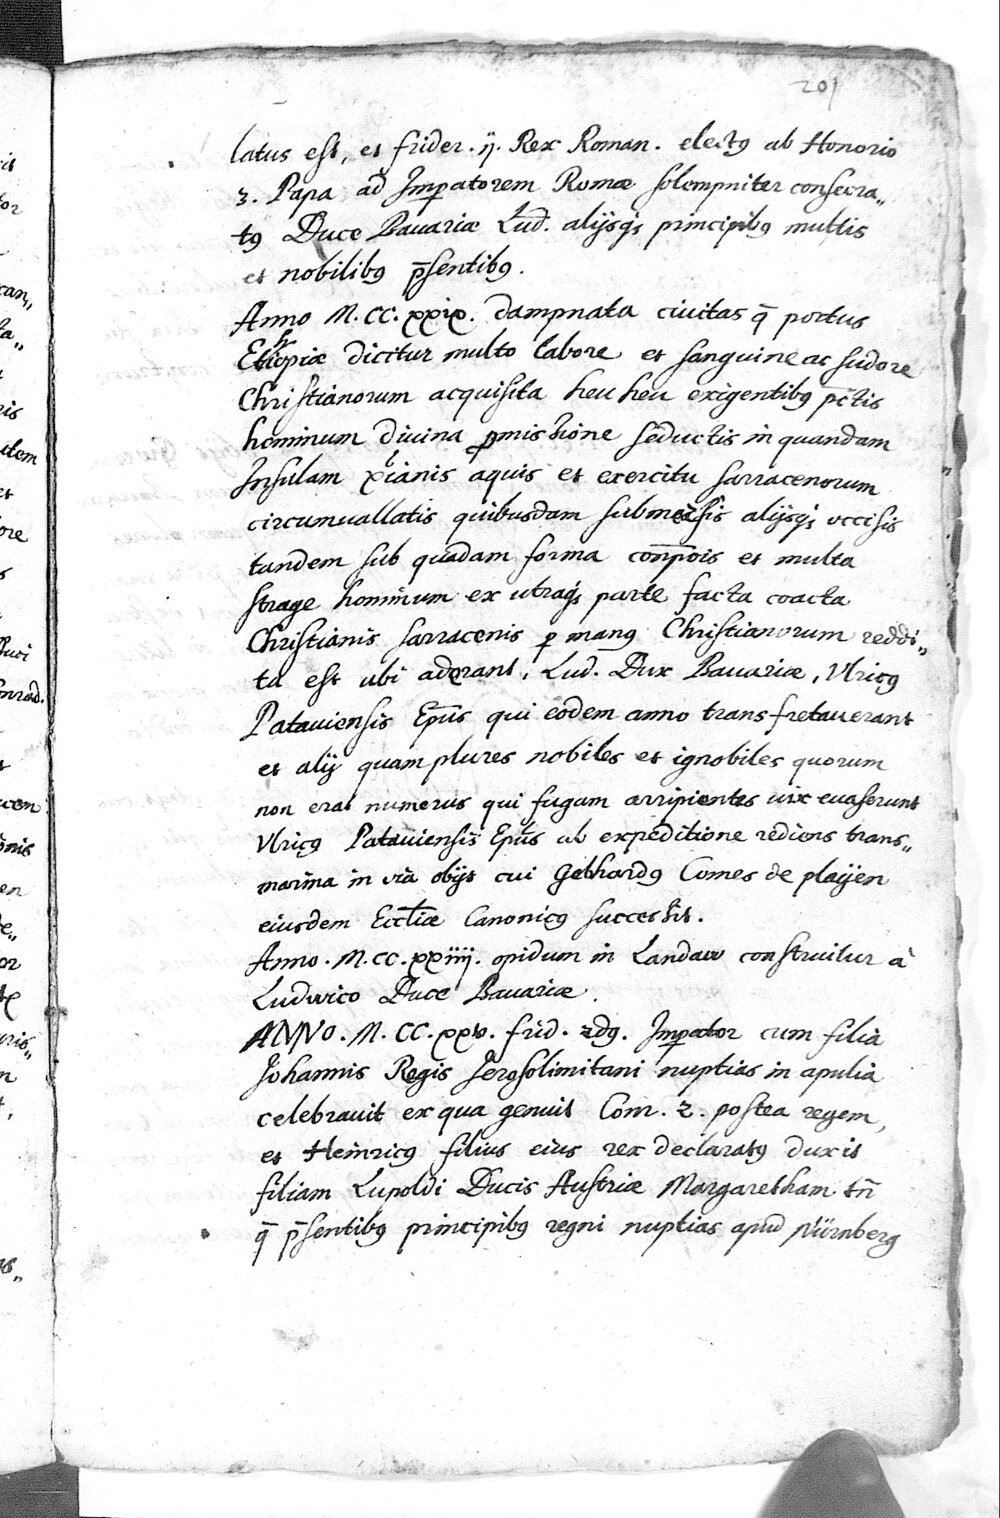 201
latus est, et frider. ij. Rex Roman. elect9 ab Honorio
3. Papa ad Imp̱atorem Romæ solempniter consecra„
t9 Duce Bauariæ Lud. alijsq; principib9 multis
et nobilib9 p̄sentib9.
Anno M. CC. xxix. dampnata ciuitas q̄ portus
Ethiopiæ dicitur multo labore et sanguine ac sudore
Christianorum acquisita heu heu exigentib9 pc̄tis
hominum diuina ꝑmissione seductis in quandam
Insulam xp̄ianis aquis et exercitu sarracenorum
circumuallatis quibusdam submersis alijsq; occisis
tandem sub quadam forma com̄pois et multa
strage hominum ex utraq; parte facta coacta
Christianis sarracenis ꝑ man9 Christianorum reddi„
ta est ubi aderant, Lud. Dux Bauariæ, Vlric9
Patauiensis Ep̄us qui eodem anno transfretauerant
et alij quam plures nobiles et ignobiles quorum
non erat numerus qui fugam arripientes uix euaserunt
Vlric9 Patauiensis Ep̄us ab expeditione rediens trans„
marina in via obijt cui Gebhard9 Comes de playen
eiusdem Eccl̄iæ Canonic9 successit.
Anno. M. CC. xxiiij. opidum in Landaw construitur à
Ludwico Duce Bauariæ.
ANNO. M. CC. xxv. frid. 2d9. Imp̱ator cum filia
Johannis Regis Jerosolimitani nuptias in apulia
celebrauit ex qua genuit Conr. 2. postea regem,
et Heinric9 filius eius rex declarat9 duxit
filiam Lupoldi Ducis Austriæ Margaretham tn̄
q̄ p̄sentib9 principib9 regni nuptias apud Nürnberg